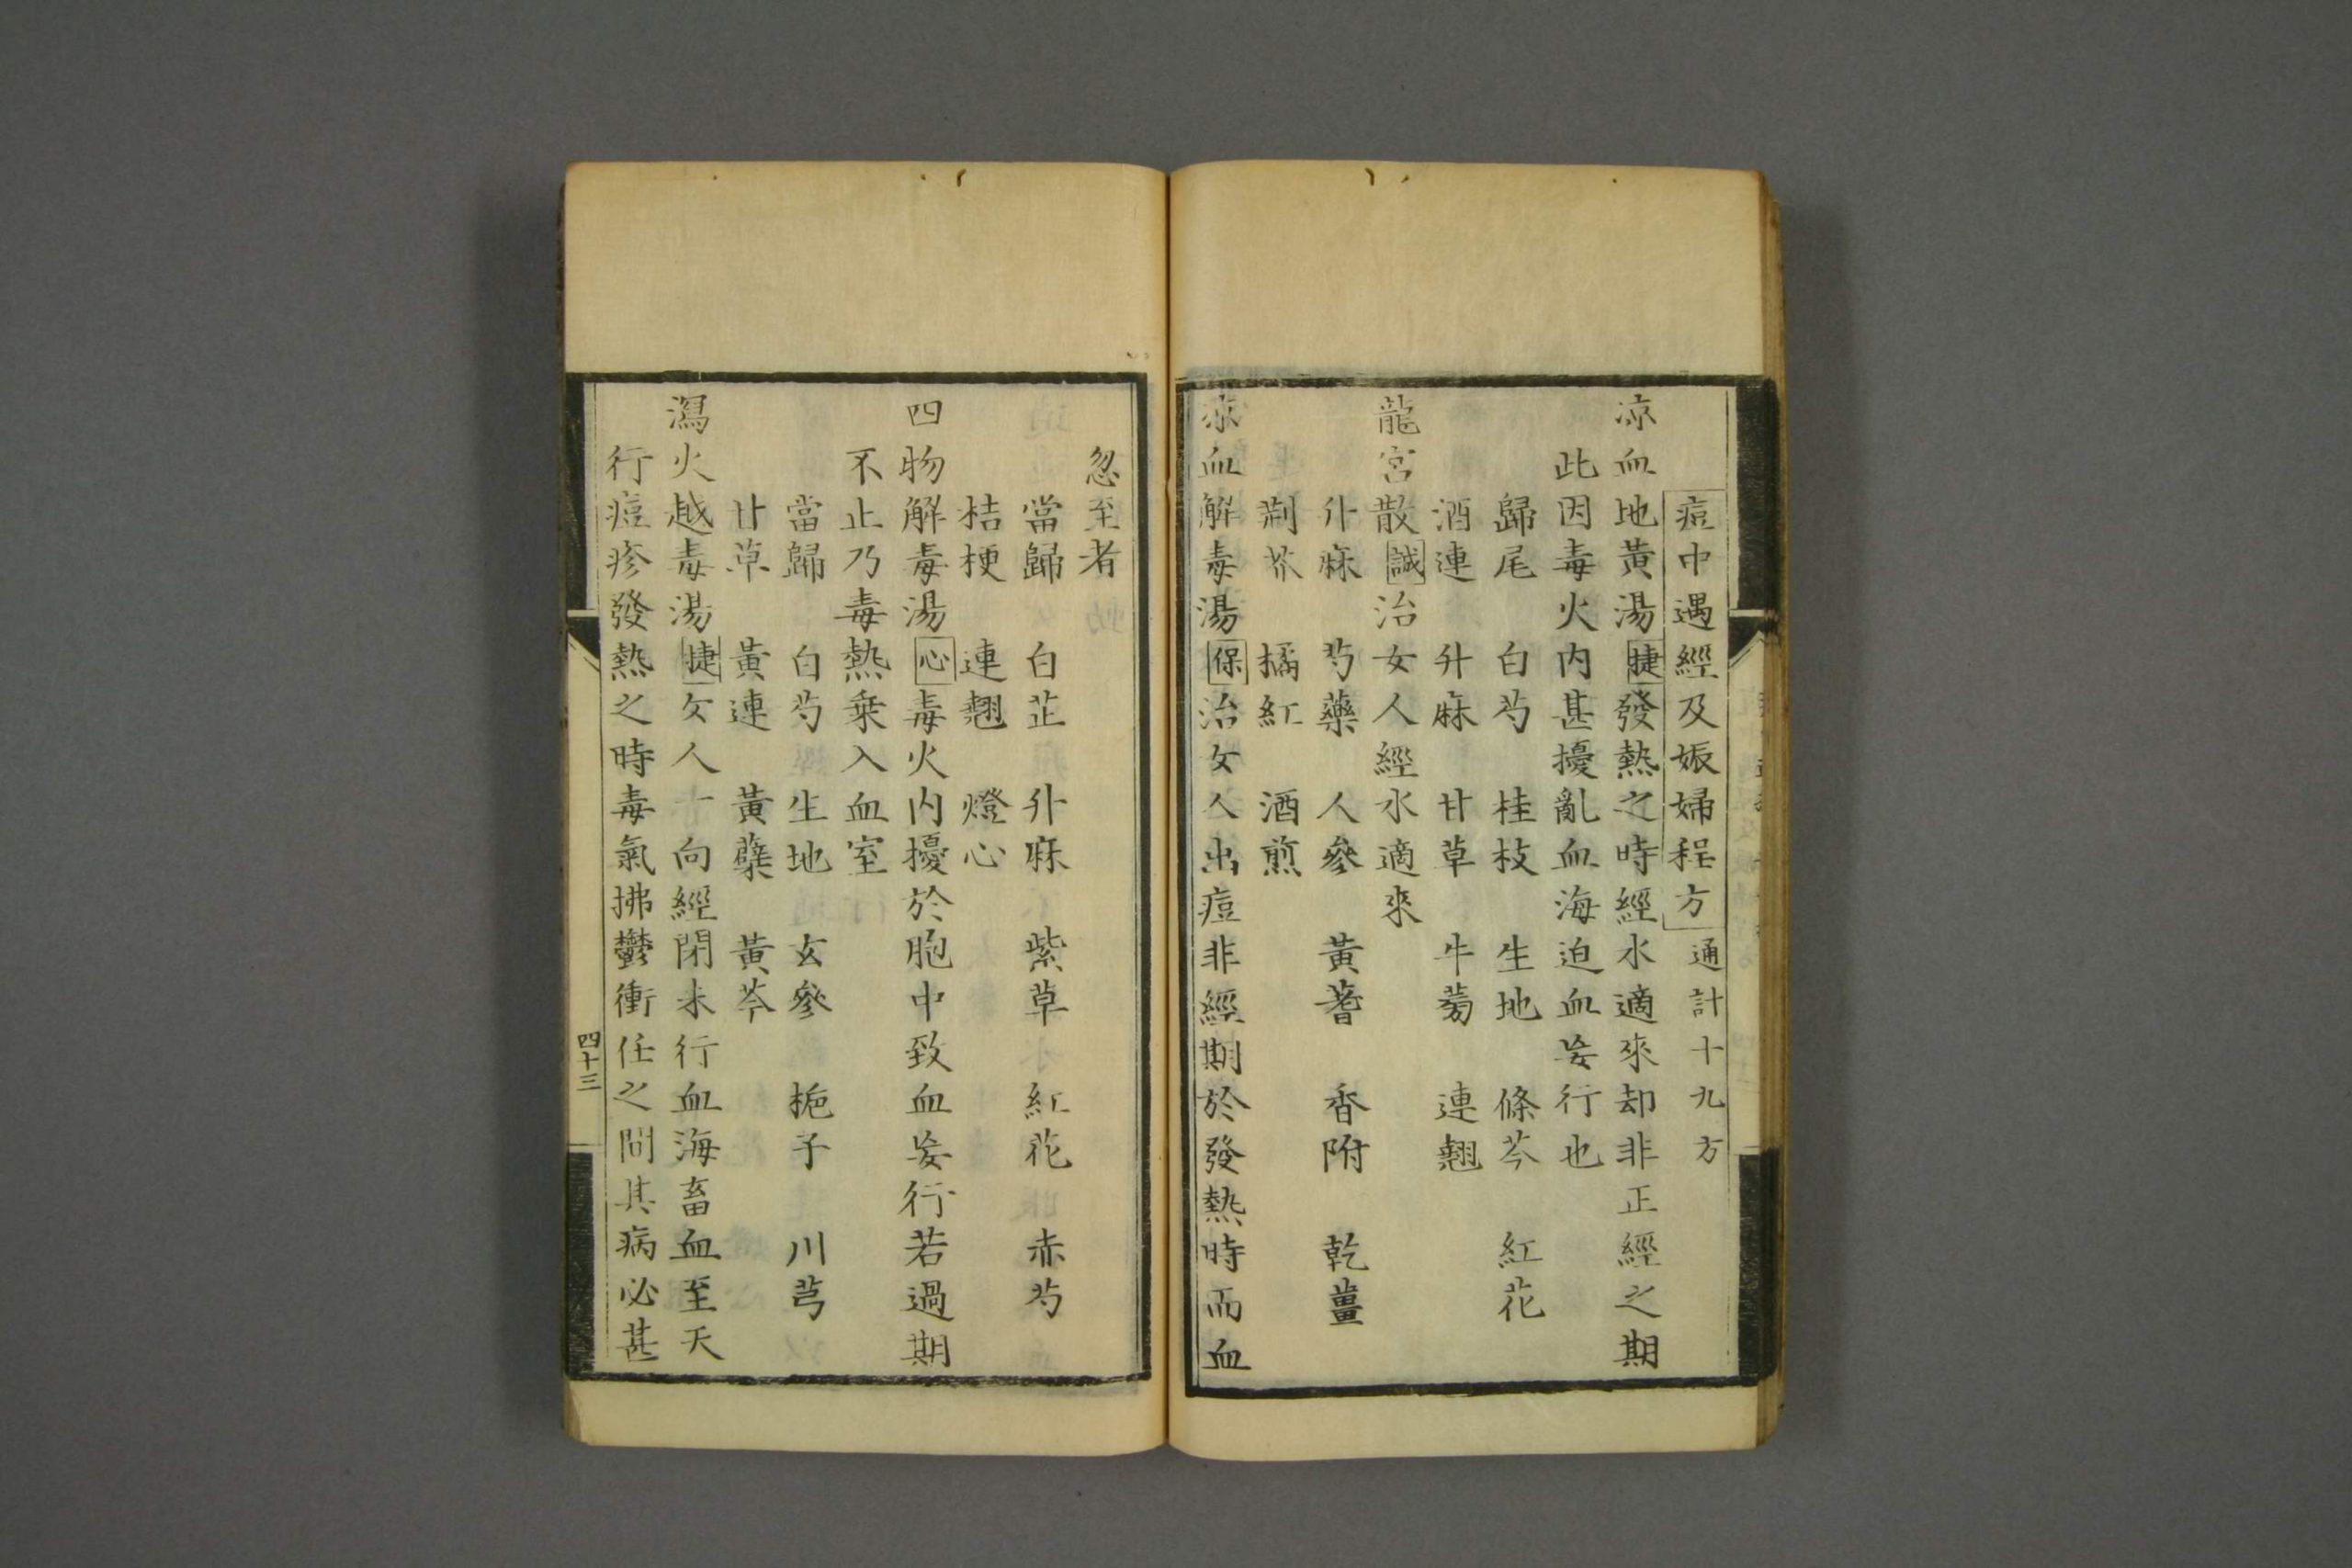 痘中遇經及娠婦程方 通計十九方
凉血地黃湯 捷 發熱之時經水適來却非正經之期
此因毒火内甚擾亂血海迫血妄行也
歸尾 白芍 桂枝 生地 條芩 紅花
酒連 升麻 甘草 牛蒡 連翹
龍宮散 誠 治女人經水適來
升麻 芍藥 人參 黃蓍 香附 乾薑
荆芥 橘紅 酒煎
凉血解毒湯 保 治女人出痘非經期於發熱時而血
忽至者
當歸 白芷 升麻 紫草 紅花 赤芍
桔梗 連翹 燈心
四物解毒湯 心 毒火内擾於胞中致血妄行若過期
不止乃毒熱乘入血室
當歸 白芍 生地 玄參 梔子 川芎
甘草 黃連 黃蘗 黃芩
瀉火越毒湯 捷 女人一向經閉未行血海畜血至天
行痘疹發熱之時毒氣拂鬱衝任之間其病必甚
四十三